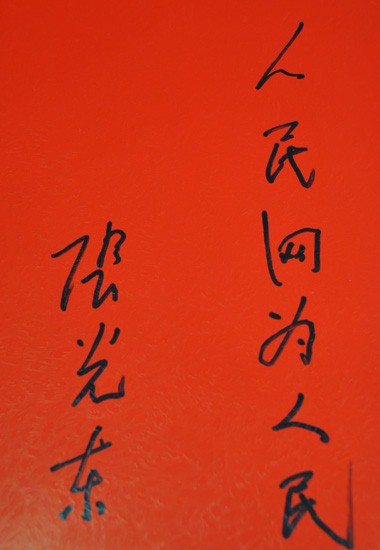 人民网为人民
光东